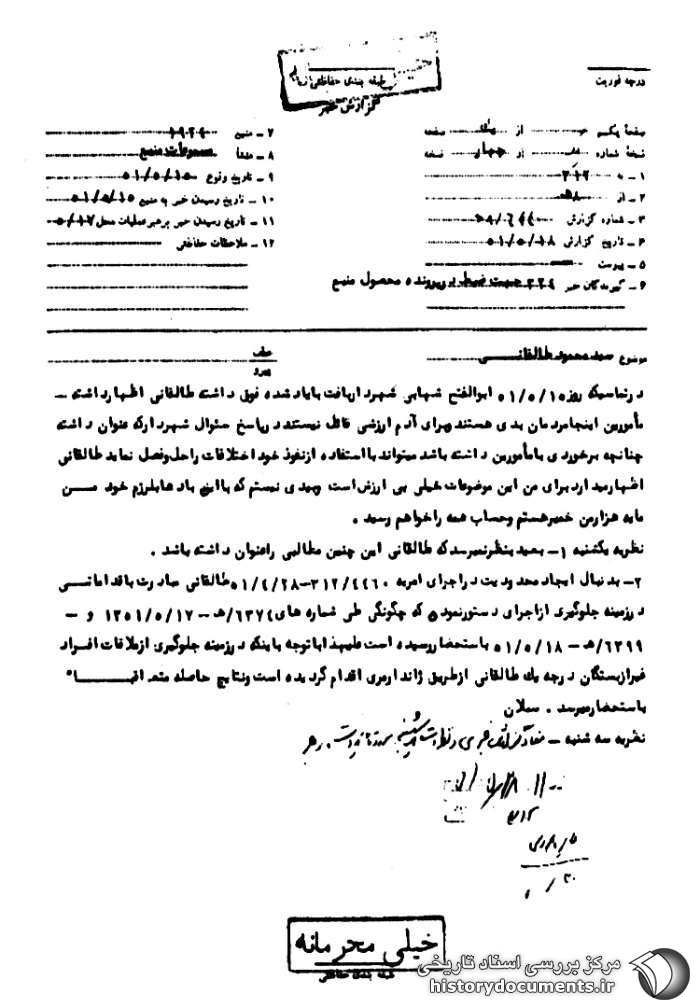 درجه فوریت
طبقه بندی حفاظتی
گزارش خبر
صفحه یکم از یک صفحه
نسخه شماره از چهار نسخه
۱ - به ۳۱۲
۲ - از ۵۸
۳ - شماره گزارش
۴ - تاریخ گزارش ۵۱/۵/۱۸
۵ - پیوست
۶ - گیرندگان خبر ۳۳۴ جهت ضبط در پرونده محصول منبع
۷ - منبع
۸ - منشأ مسموعات منبع
۹ - تاریخ وقوع ۵۱/۵/۱۵
۱۰ - تاریخ رسیدن خبر به منبع ۵۱/۵/۱۵
۱۱ - تاریخ رسیدن خبر برهبر عملیات محل ۵/۱۷
۱۲ - ملاحظات حفاظتی
موضوع سید محمود طالقانی
عطف
پیرو
در تماسیکه روز ۵۱/۵/۱۵ ابوالفتح شهابی شهردار بافت با یاد شده فوق داشته طالقانی اظهار داشته -
مأمورین اینجا مردمان بدی هستند و برای آدم ارزشی قائل نیستند در پاسخ سئوال شهردار که عنوان داشته
چنانچه برخوردی با مأمورین داشته باشد میتواند با استفاده از نفوذ خود اختلافات را حل و فصل نماید طالقانی
اظهار میدارد برای من این موضوعات خیلی بی ارزش است و بیدی نیستم که با این بادها بلرزم خود من
مایه هزار من خمیر هستم و حساب همه را خواهم رسید .
نظریه یکشنبه ۱- بعید بنظر میرسد که طالقانی این چنین مطالبی را عنوان داشته باشد .
۲- بدنبال ایجاد محدودیت در اجرای امریه ۳۱۲/۴۴۶۰-۵۱/۴/۲۸ طالقانی مبادرت باقداماتی
در زمینه جلوگیری از اجرای دستور نموده که چگونگی طی شماره های ۶۳۷۴/ه‍ - ۱۳۵۱/۵/۱۷ و -
۶۳۹۹/ه‍ - ۵۱/۵/۱۸ باستحضار رسیده است علیهذا با توجه باینکه در زمینه جلوگیری از ملاقات افراد
غیر از بستگان درجه یک طالقانی از طریق ژاندارمری اقدام گردیده است و نتایج حاصله متعاقباً
باستحضار میرسد . سبلان
نظریه سه شنبه -
خیلی محرمانه
طبقه بندی حفاظتی
مرکز بررسی اسناد تاریخی
historydocuments.ir